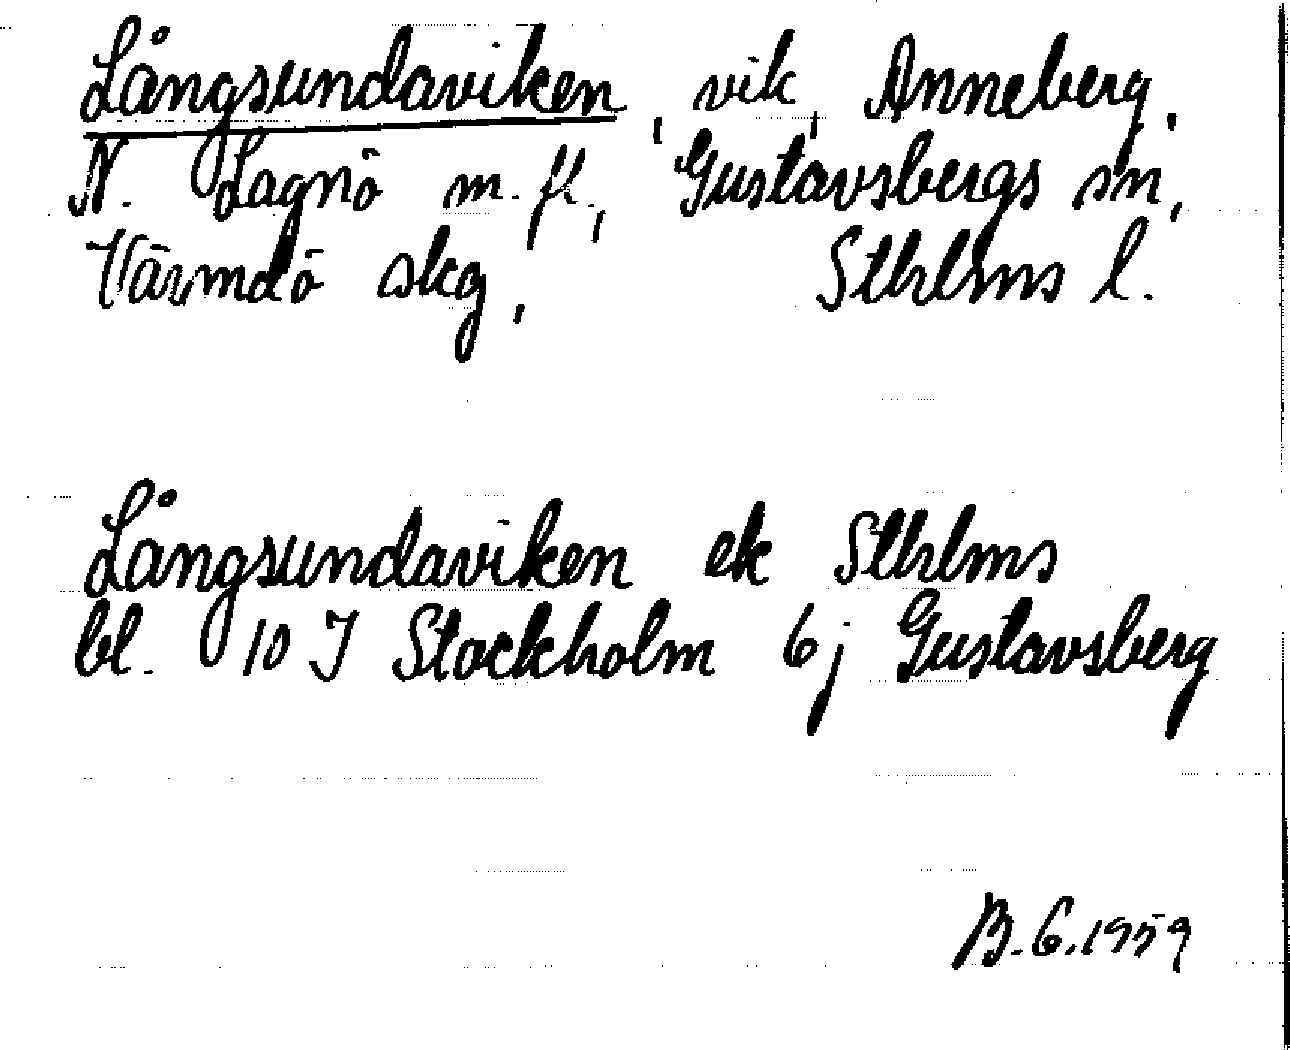 Långsundaviken, vik, Anneberg,
N. Lagnö m. fl., Gustavsbergs sn,
Värmdö skg, Sthlms l.
Långsundaviken ek Sthlms
bl. 10 J Stockholm 6 j Gustavsberg
B. G. 1959